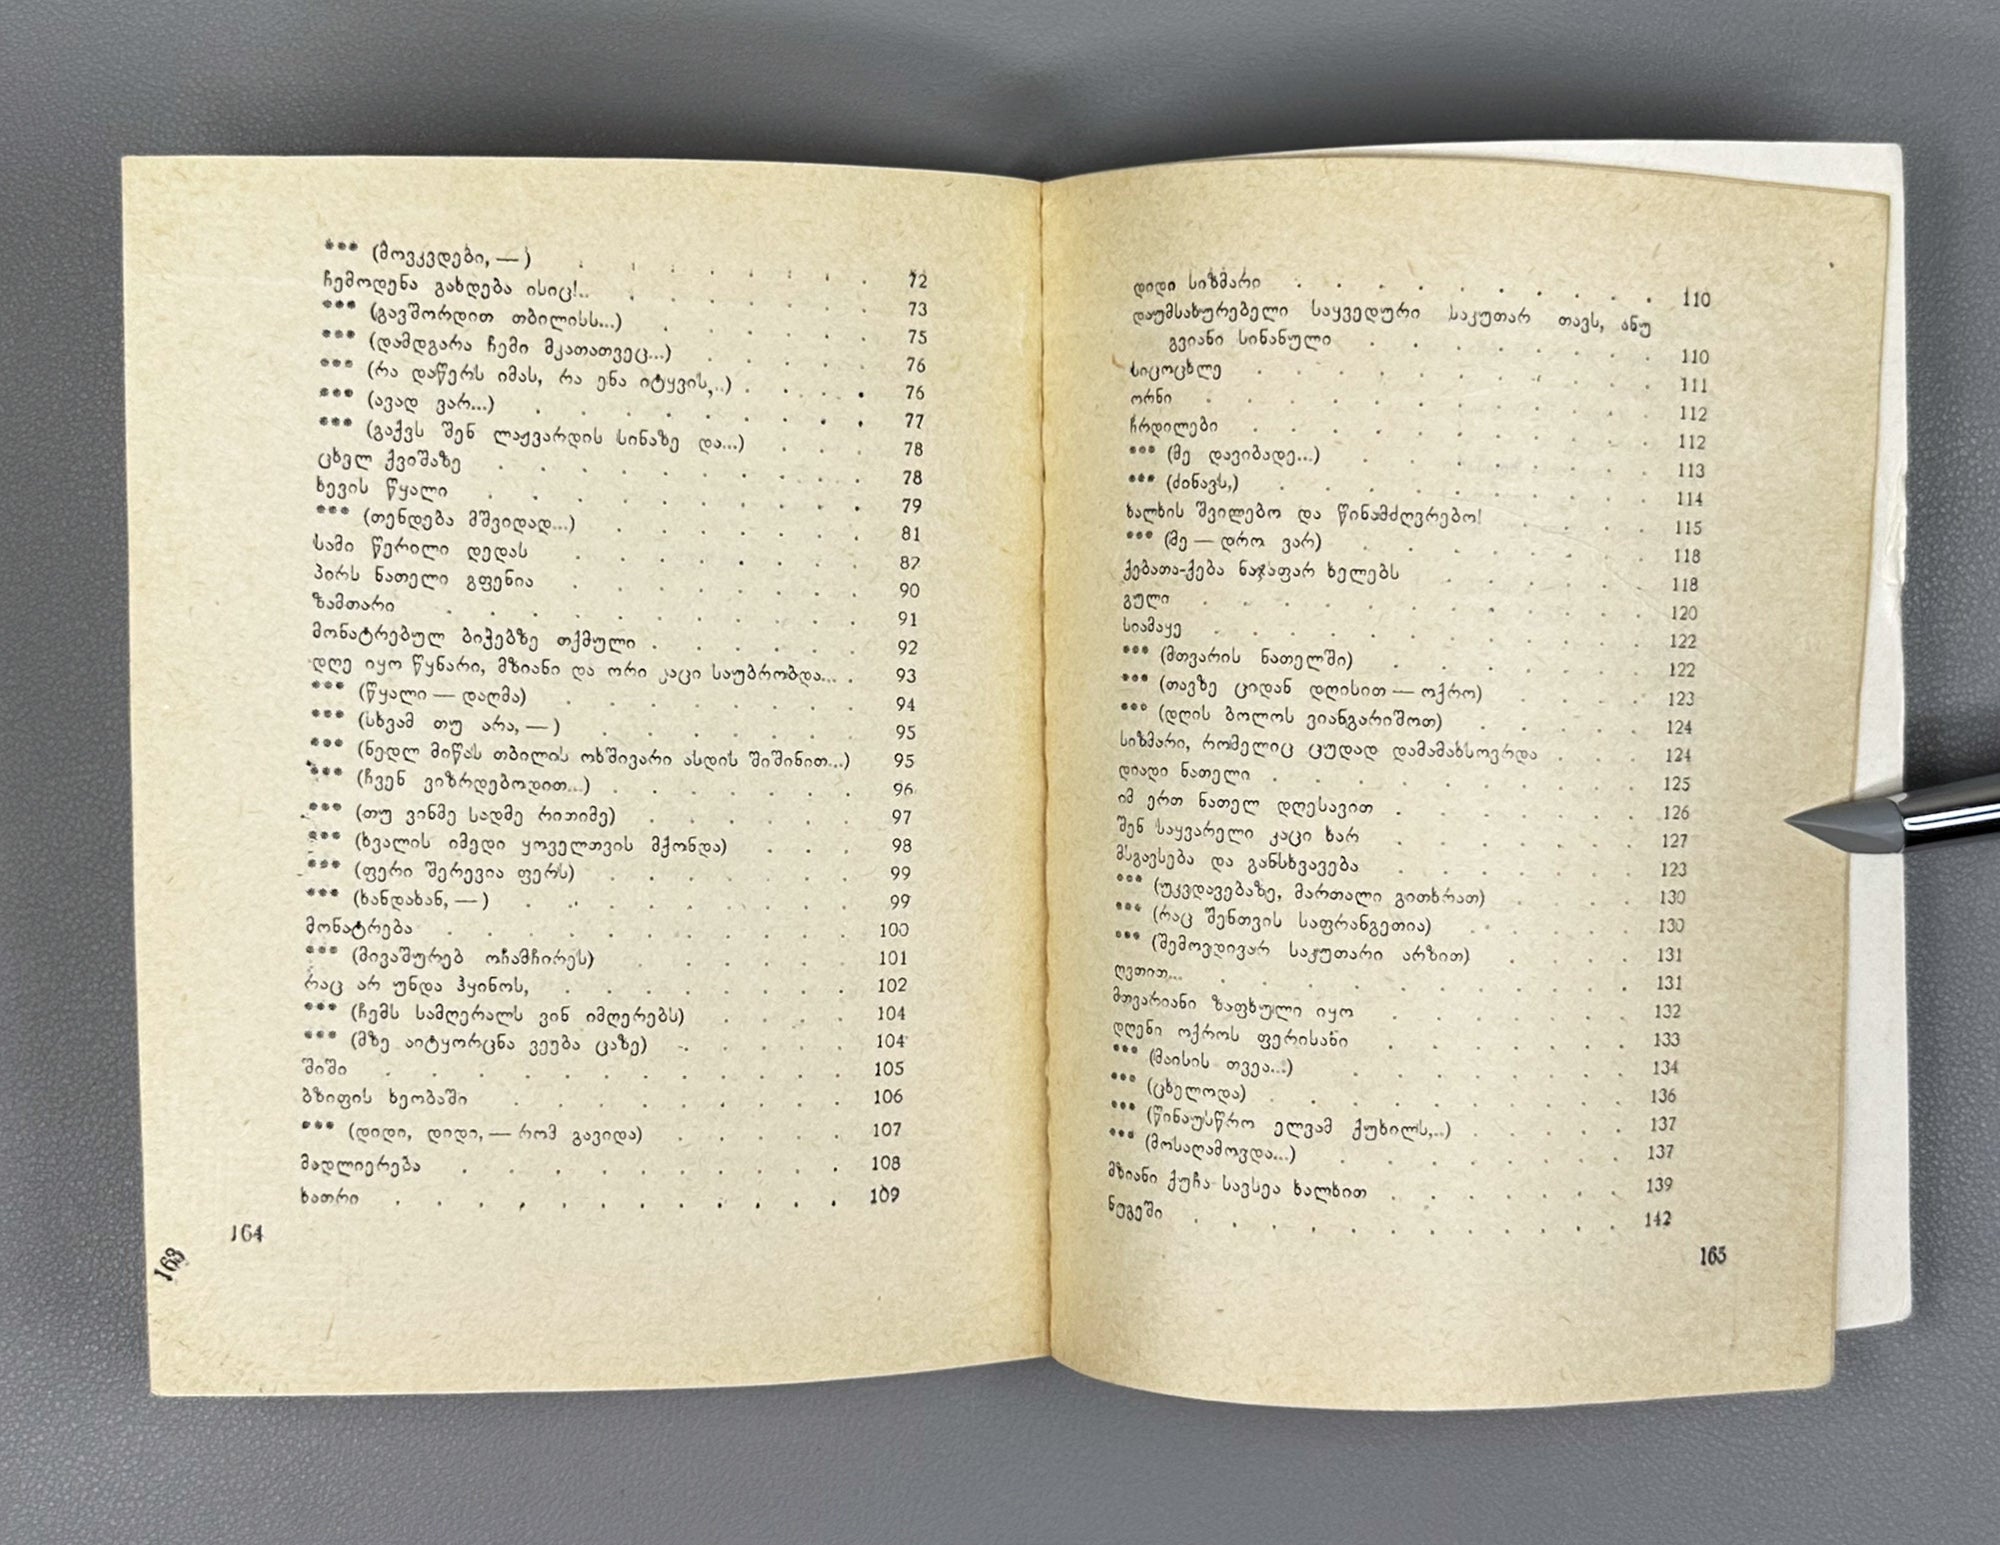 *** (მოვკვდები, — ) . . . . . . . 72
ჩემოდენა გახდება ისიც!.. . . . . . . 73
*** (გავშორდით თბილისს...) . . . . . . 75
*** (დამდგარა ჩემი მკათათვეც...) . . . . . 76
*** (რა დაწერს იმას, რა ენა იტყვის,..) . . . . 76
*** (ავად ვარ...) . . . . . . . . 77
*** (გაქვს შენ ლაჟვარდის სინაზე და...) . . . . 78
ცხელ ქვიშაზე . . . . . . . . . 78
ხევის წყალი . . . . . . . . . 79
*** (თენდება მშვიდად...) . . . . . . . 81
სამი წერილი დედას . . . . . . . . 82
პირს ნათელი გფენია . . . . . . . . 90
ზამთარი . . . . . . . . . . 91
მონატრებულ ბიჭებზე თქმული . . . . . . 92
დღე იყო წყნარი, მზიანი და ორი კაცი საუბრობდა... . 93
*** (წყალი — დაღმა) . . . . . . . 94
*** (სხვამ თუ არა, — ) . . . . . . . 95
*** (ნედლ მიწას თბილის ოხშივარი ასდის შიშინით...) 95
*** (ჩვენ ვიზრდებოდით...) . . . . . . 96
*** (თუ ვინმე სადმე რითიმე) . . . . . . 97
*** (ხვალის იმედი ყოველთვის მქონდა) . . . 98
*** (ფერი შერევია ფერს) . . . . . . . 99
*** (ხანდახან, — ) . . . . . . . . 99
მონატრება . . . . . . . . . . 100
*** (მივაშურებ ოჩამჩირეს) . . . . . . 101
რაც არ უნდა ჰყინოს, . . . . . . . . 102
*** (ჩემს სამღერალს ვინ იმღერებს) . . . . 104
*** (მზე აიტყორცნა ვეება ცაზე) . . . . . 104
შიში . . . . . . . . . . . 105
ბზიფის ხეობაში . . . . . . . . . 106
*** (დიდი, დიდი, — რომ გავიდა) . . . . . 107
მადლიერება . . . . . . . . . . 108
ხათრი . . . . . . . . . . . 109
164
163
დიდი სიზმარი . . . . . . . . . . 110
დაუმსახურებელი საყვედური საკუთარ თავს, ანუ
გვიანი სინანული . . . . . . . . 110
სიცოცხლე . . . . . . . . . . 111
ორნი . . . . . . . . . . . 112
ჩრდილები . . . . . . . . . . 112
*** (მე დავიბადე...) . . . . . . . . 113
*** (ძინავს,) . . . . . . . . . 114
ხალხის შვილებო და წინამძღვრებო! . . . . 115
*** (მე — დრო ვარ) . . . . . . . . 118
ქებათა-ქება ნაჯაფარ ხელებს . . . . . . 118
გული . . . . . . . . . . . 120
სიამაყე . . . . . . . . . . . 122
*** (მთვარის ნათელში) . . . . . . . 122
*** (თავზე ციდან დღისით — ოქრო) . . . . 123
*** (დღის ბოლოს ვიანგარიშოთ) . . . . . 124
სიზმარი, რომელიც ცუდად დამამახსოვრდა . . . 124
დიადი ნათელი . . . . . . . . . 125
იმ ერთ ნათელ დღესავით . . . . . . . 126
შენ საყვარელი კაცი ხარ . . . . . . . 127
მსგავსება და განსხვავება . . . . . . . 123
*** (უკვდავებაზე, მართალი გითხრათ) . . . . 130
*** (რაც შენთვის საფრანგეთია) . . . . . 130
*** (შემოვდივარ საკუთარი არზით) . . . . 131
ღვთით... . . . . . . . . . . . 131
მთვარიანი ზაფხული იყო . . . . . . . 132
დღენი ოქროს ფერისანი . . . . . . . 133
*** (მაისის თვეა...) . . . . . . . . 134
*** (ცხელოდა) . . . . . . . . . 136
*** (წინაუსწრო ელვამ ქუხილს,..) . . . . . 137
*** (მოსაღამოვდა...) . . . . . . . . 137
მზიანი ქუჩა სავსეა ხალხით . . . . . . 139
ნუგეში . . . . . . . . . . . 142
165